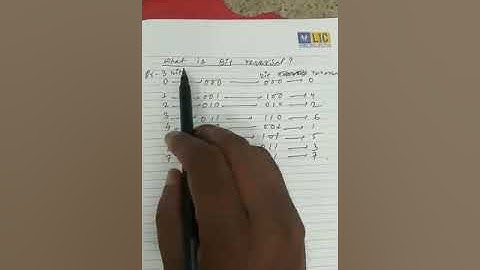 LIC
What is Bit reversal?
3 bit bit
0 000 000 0
1 001 100 4
2 010 010 2
3 011 110 6
4 001 1
101 5
011 3
7 7